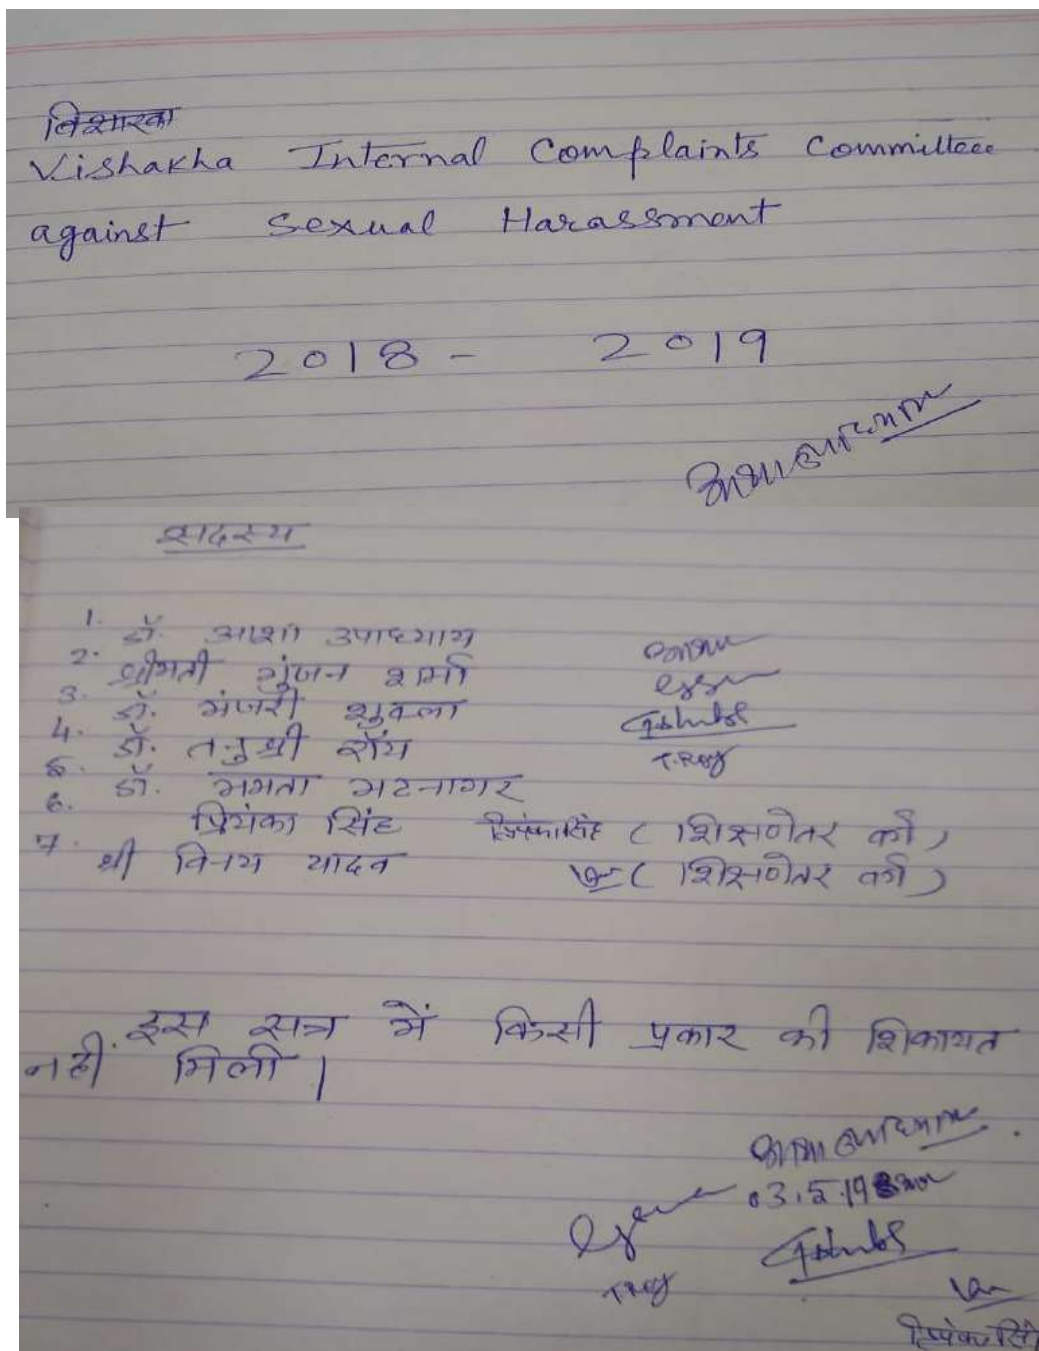 विशाखा
Vishakha Internal Complaints Committee
against Sexual Harassment
2018 - 2019
आशा उपाध्याय
सदस्य
1. डॉ. आशा उपाध्याय
2. श्रीमती गुंजन शर्मा
3. डॉ. मंजरी शुक्ला
4. डॉ. तनुश्री रॉय T.Roy
5. डॉ. ममता भटनागर
6. प्रियंका सिंह प्रियंका सिंह ( शिक्षणेतर वर्ग )
7. श्री विनय यादव ( शिक्षणेतर वर्ग )
इस सत्र में किसी प्रकार की शिकायत
नहीं मिली |
आशा उपाध्याय
03.5.19
T.Roy
प्रियंका सिंह